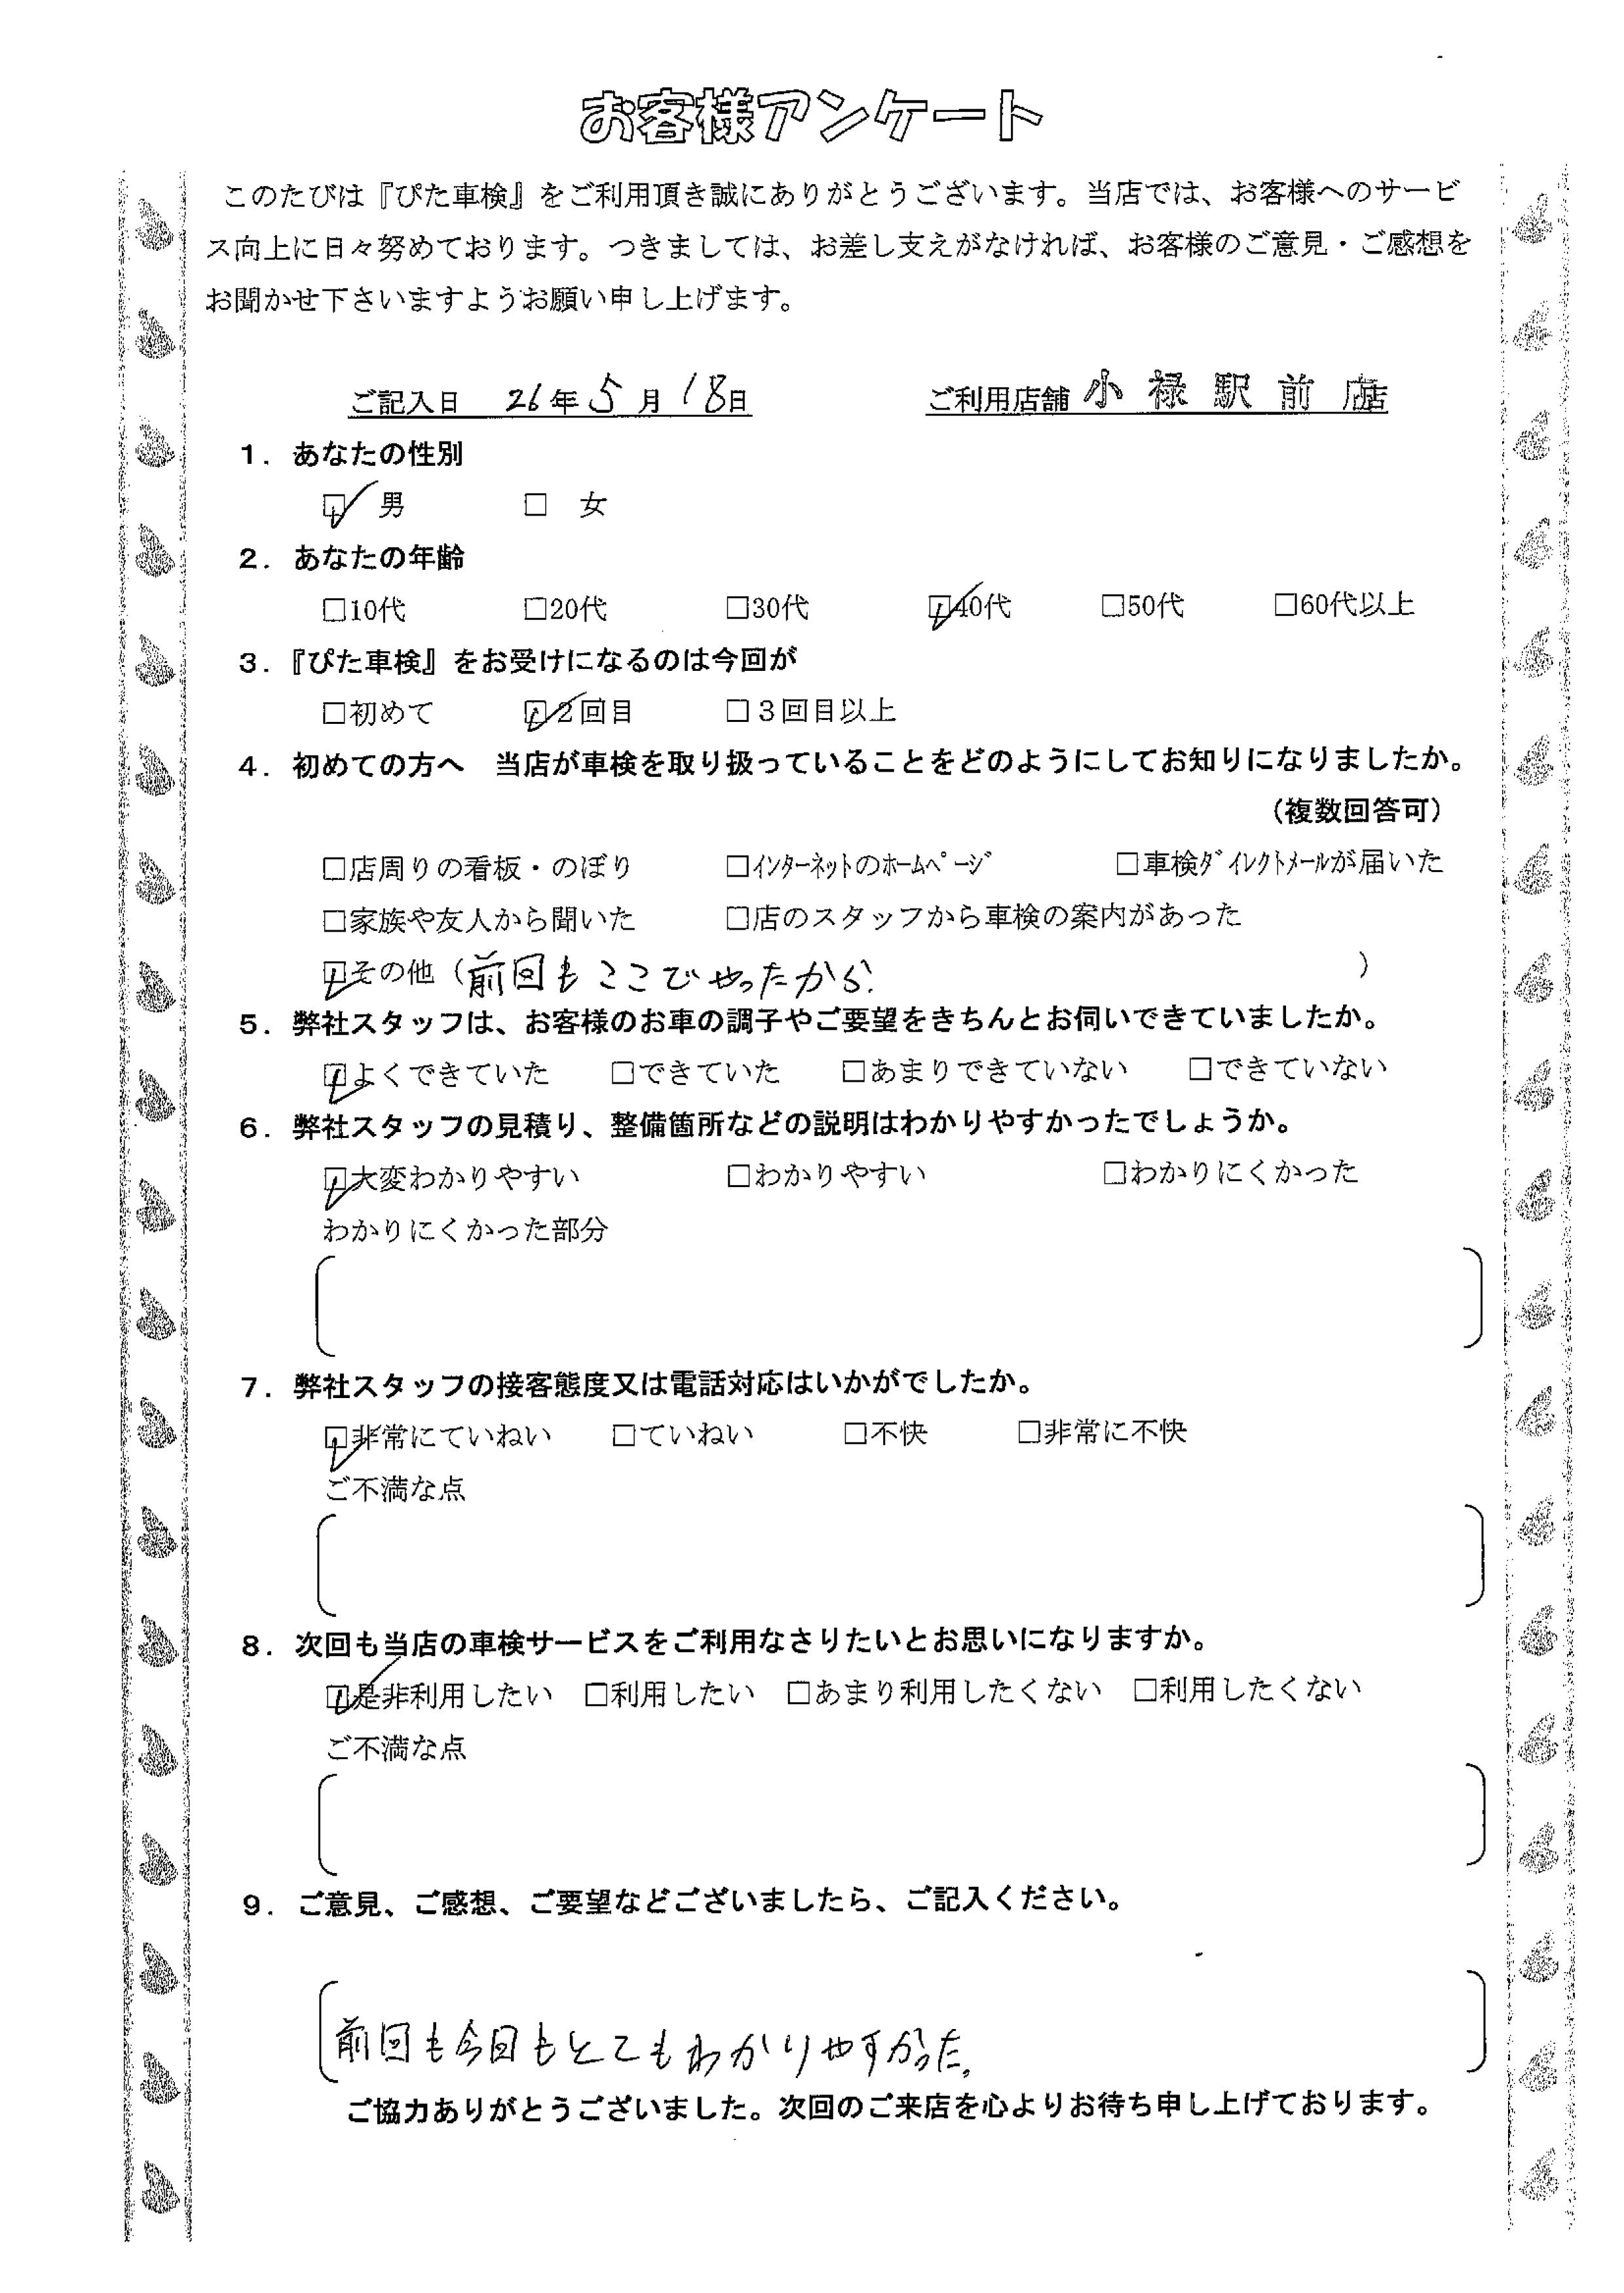 お客様アンケート
このたびは『ぴた車検』をご利用頂き誠にありがとうございます。当店では、お客様へのサービ
ス向上に日々努めております。つきましては、お差し支えがなければ、お客様のご意見・ご感想を
お聞かせ下さいますようお願い申し上げます。
ご記入日 26年5月18日 ご利用店舗 小禄駅前店店
1．あなたの性別
☑ 男 □ 女
2．あなたの年齢
□10代 □20代 □30代 ☑40代 □50代 □60代以上
3．『ぴた車検』をお受けになるのは今回が
□初めて ☑2回目 □3回目以上
4．初めての方へ 当店が車検を取り扱っていることをどのようにしてお知りになりましたか。
（複数回答可）
□店周りの看板・のぼり □ｲﾝﾀｰﾈｯﾄのﾎｰﾑﾍﾟｰｼﾞ □車検ﾀﾞｲﾚｸﾄﾒｰﾙが届いた
□家族や友人から聞いた □店のスタッフから車検の案内があった
☑その他（前回もここでやったから.）
5．弊社スタッフは、お客様のお車の調子やご要望をきちんとお伺いできていましたか。
☑よくできていた □できていた □あまりできていない □できていない
6．弊社スタッフの見積り、整備箇所などの説明はわかりやすかったでしょうか。
☑大変わかりやすい □わかりやすい □わかりにくかった
わかりにくかった部分
7．弊社スタッフの接客態度又は電話対応はいかがでしたか。
☑非常にていねい □ていねい □不快 □非常に不快
ご不満な点
8．次回も当店の車検サービスをご利用なさりたいとお思いになりますか。
☑是非利用したい □利用したい □あまり利用したくない □利用したくない
ご不満な点
9．ご意見、ご感想、ご要望などございましたら、ご記入ください。
前回も今回もとてもわかりやすかった。
ご協力ありがとうございました。次回のご来店を心よりお待ち申し上げております。